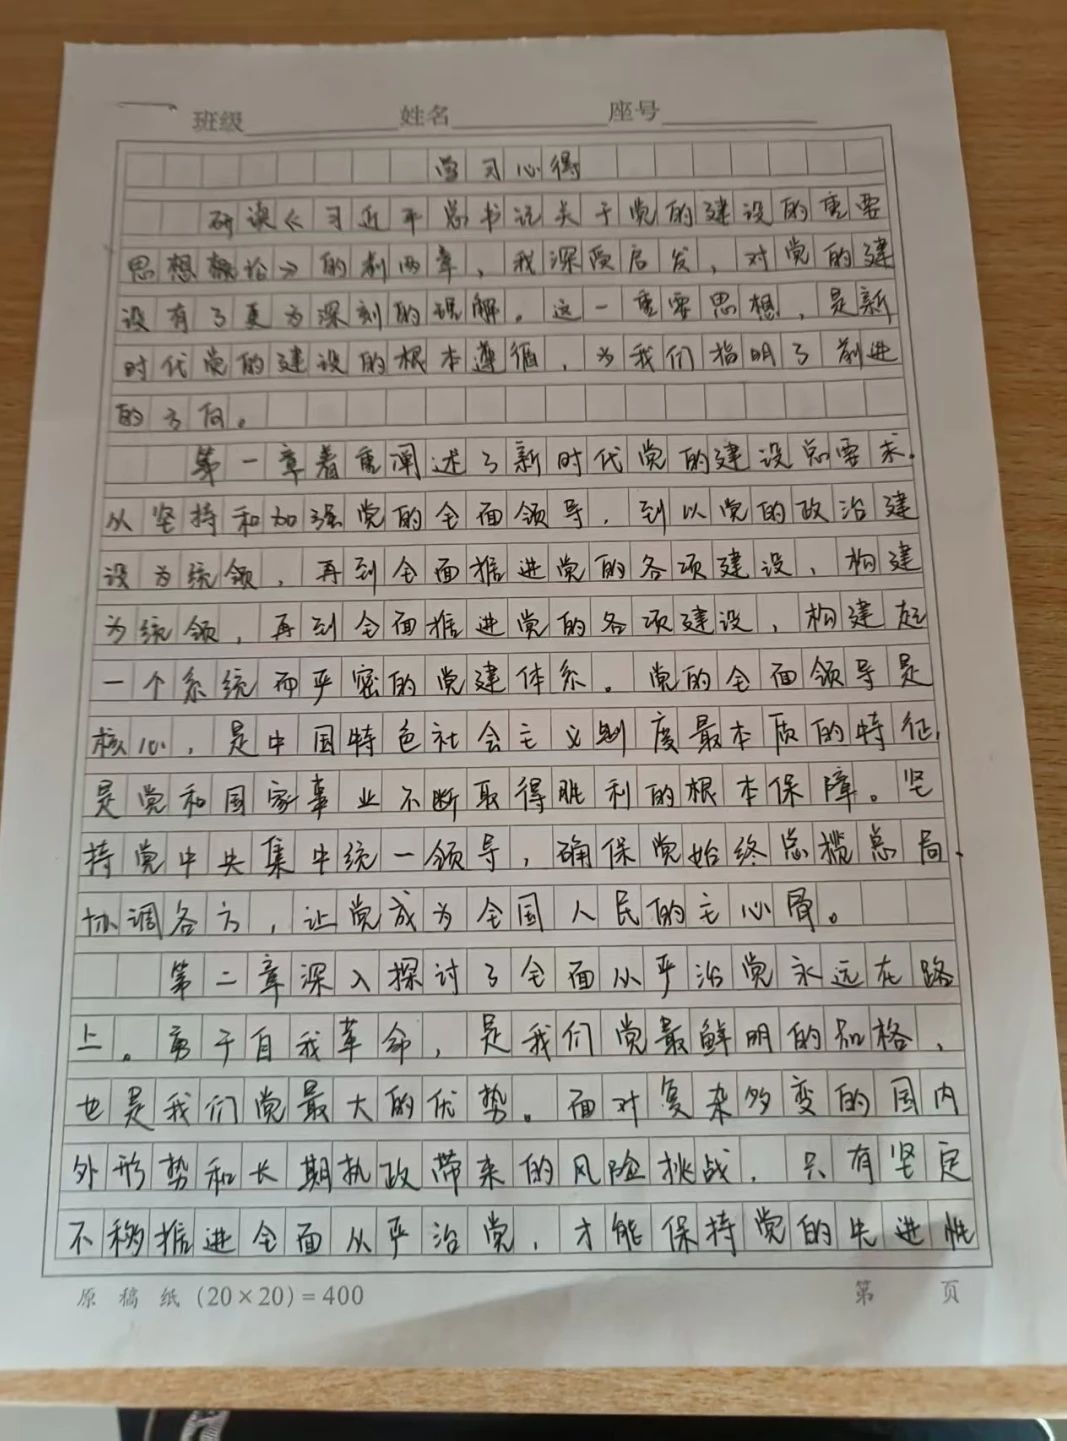 班级 姓名 座号
学习心得
研读《习近平总书记关于党的建设的重要
思想概论》的前两章，我深受启发，对党的建
设有了更为深刻的理解。这一重要思想，是新
时代党的建设的根本遵循，为我们指明了前进
的方向。
第一章着重阐述了新时代党的建设总要求.
从坚持和加强党的全面领导，到以党的政治建
设为统领，再到全面推进党的各项建设，构建
为统领，再到全面推进党的各项建设，构建起
一个系统而严密的党建体系。党的全面领导是
核心，是中国特色社会主义制度最本质的特征,
是党和国家事业不断取得胜利的根本保障。坚
持党中央集中统一领导，确保党始终总揽总局.
协调各方，让党成为全国人民的主心骨。
第二章深入探讨了全面从严治党永远在路
上。勇于自我革命，是我们党最鲜明的品格，
也是我们党最大的优势。面对复杂多变的国内
外形势和长期执政带来的风险挑战，只有坚定
不移推进全面从严治党，才能保持党的先进性
原稿纸(20×20)=400 第 页